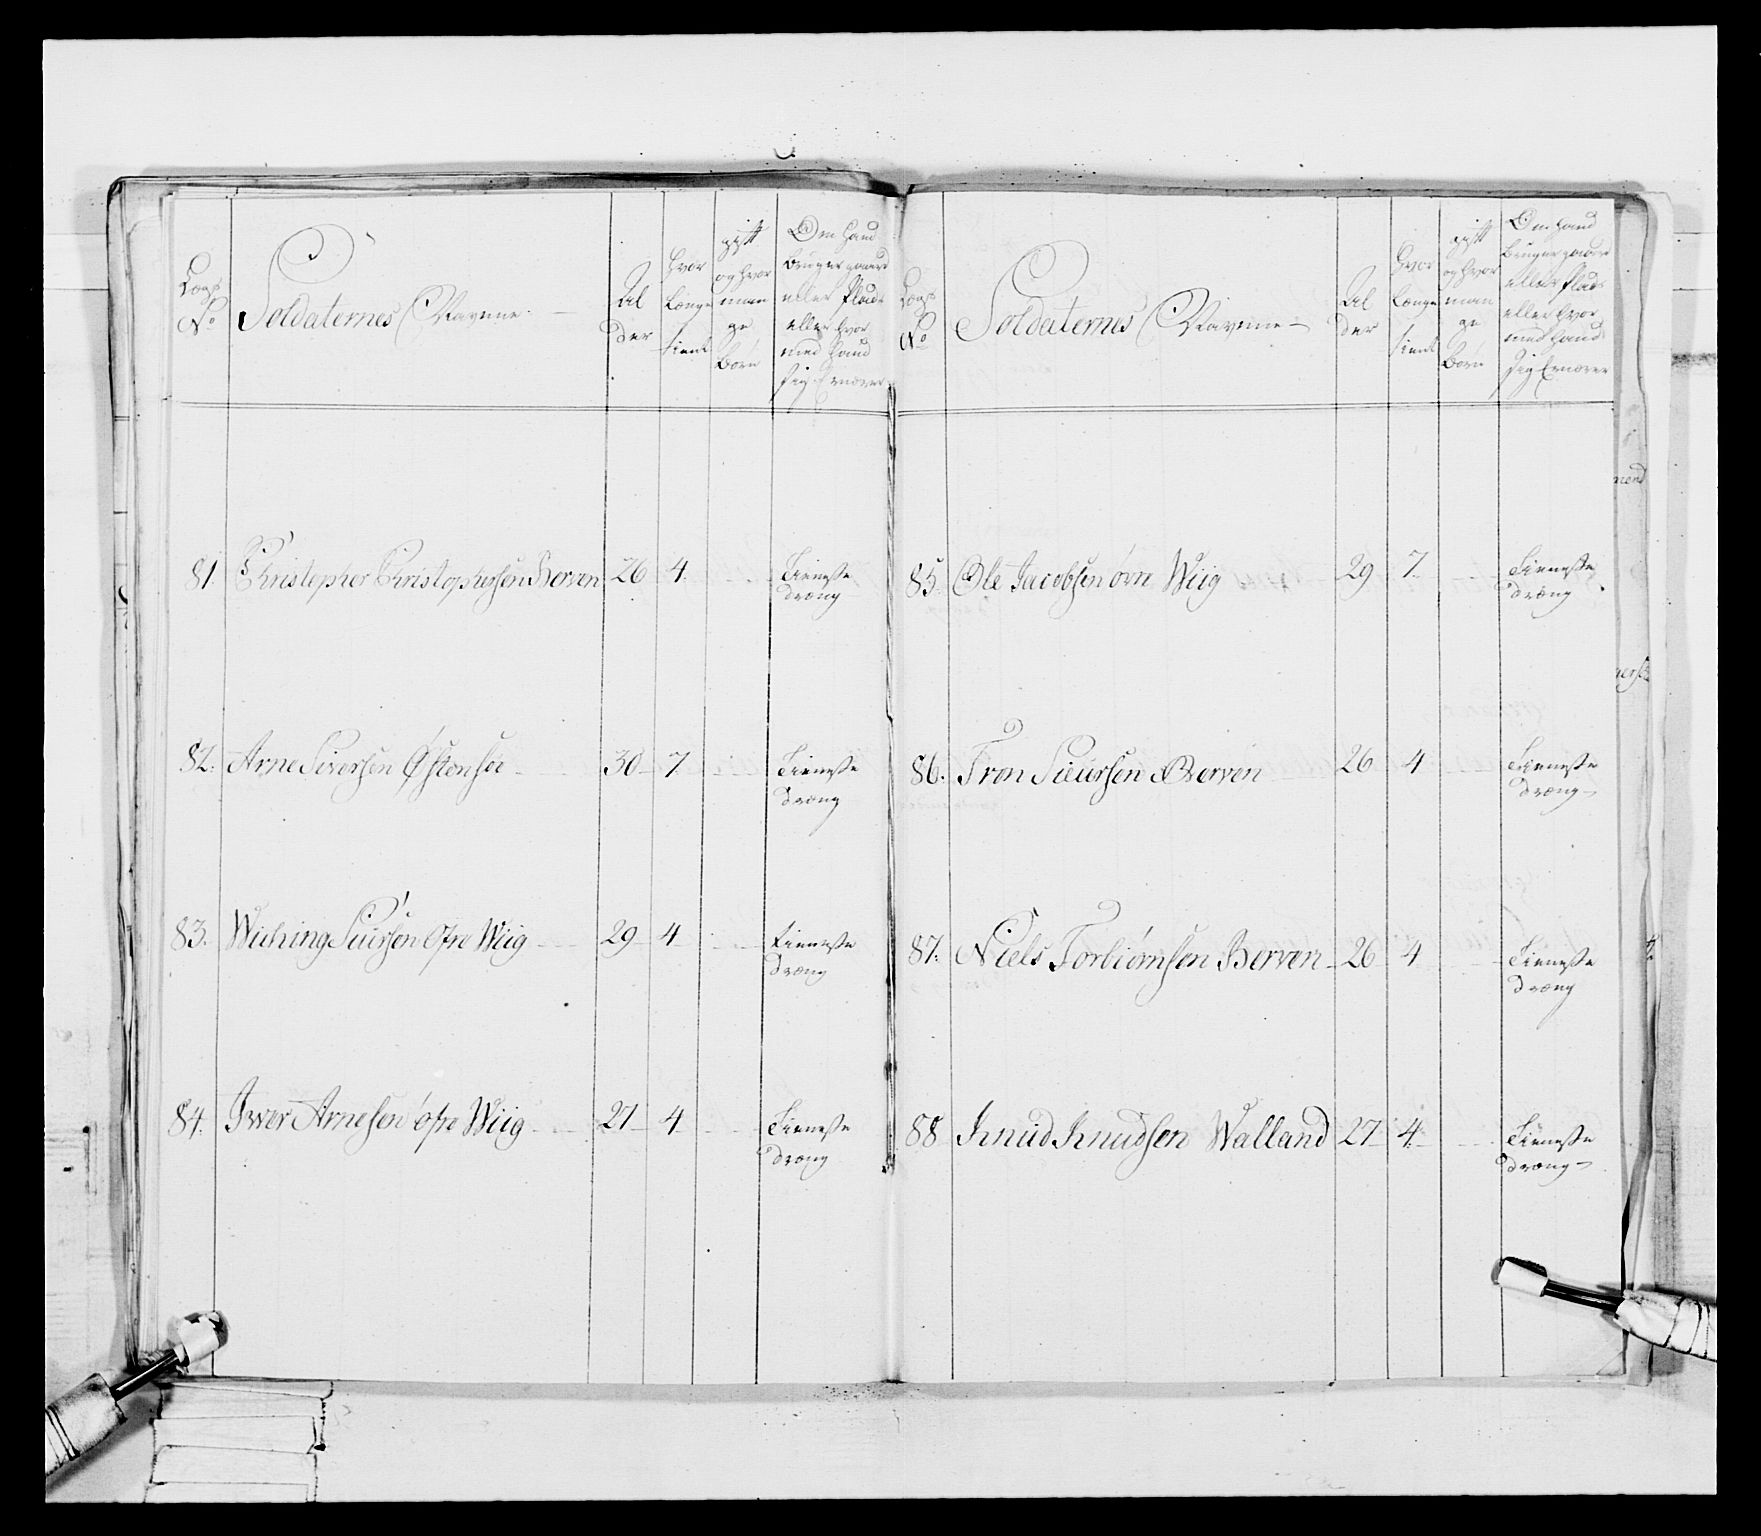 Lægs No
Soldaternes Navne
Al der
hvor længe tient
gift og hvor man ge børn
Om hand bruger gaard eller plads eller hvor med hand sig Ernærer
81. Christopher Christophersen Berven 26 4 Tieneste dræng
82. Arne Siversen Østensøe 30 7 Tieneste dræng
83. Wiching Siursen Øfre Wiig 29 4 tieneste dræng
84. Iver Arnesen øfre Wiig 27 4 Tieneste dræng
Lægs No
Soldaternes Navne
Al der
hvor længe tient
gift og hvor man ge børn
Om hand bruger gaard eller plads eller hvor med hand sig Ernærer
85. Ole Jacobsen øvre Wiig 29 7 Tieneste dræng
86. Tron Siursen Berven 26 4 Tieneste dræng
87. Niels Torbiørnsen Berven 26 4 Tieneste dræng
88 Knud Knudsen Walland 27 4 Tieneste dræng